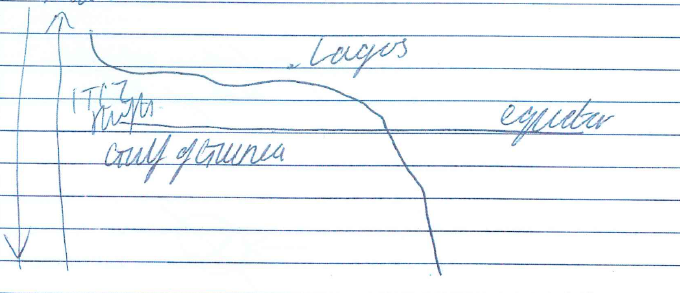 Lagos
ITCZ
equator
Gulf of Guinea